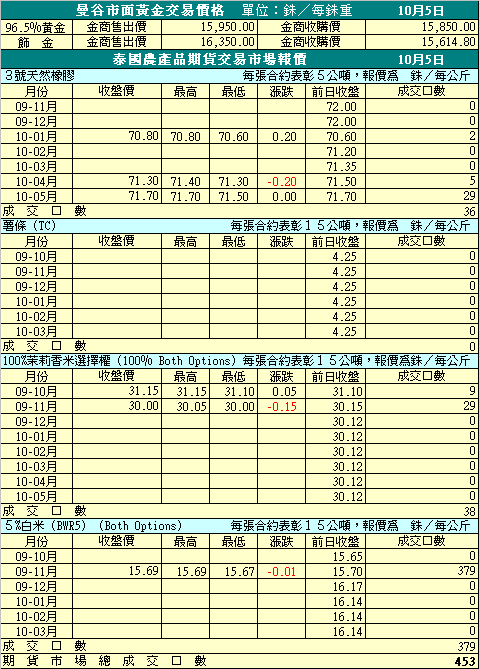 曼谷市面黃金交易價格 單位：銖／每銖重 10月5日
96.5%黃金 金商售出價 15,950.00 金商收購價 15,850.00
飾 金 金商售出價 16,350.00 金商收購價 15,614.80
泰國農產品期貨交易市場報價 10月5日
３號天然橡膠 每張合約表彰５公噸，報價爲 銖／每公斤
月份 收盤價 最高 最低 漲跌 前日收盤 成交口數
09-11月 72.00 0
09-12月 72.00 0
10-01月 70.80 70.80 70.60 0.20 70.60 2
10-02月 71.20 0
10-03月 71.35 0
10-04月 71.30 71.40 71.30 -0.20 71.50 5
10-05月 71.70 71.70 71.50 0.00 71.70 29
成 交 口 數 36
薯條 (TC) 每張合約表彰１５公噸，報價爲 銖／每公斤
月份 收盤價 最高 最低 漲跌 前日收盤 成交口數
09-10月 4.25 0
09-11月 4.25 0
09-12月 4.25 0
10-01月 4.25 0
10-02月 4.25 0
10-03月 4.25 0
成 交 口 數 0
100%茉莉香米選擇權 (100% Both Options) 每張合約表彰１５公噸，報價爲銖／每公斤
月份 收盤價 最高 最低 漲跌 前日收盤 成交口數
09-10月 31.15 31.15 31.10 0.05 31.10 9
09-11月 30.00 30.05 30.00 -0.15 30.15 29
09-12月 30.12 0
10-01月 30.12 0
10-02月 30.12 0
10-03月 30.12 0
10-04月 30.12 0
10-05月 30.12 0
成 交 口 數 38
５%白米 (BWR5) (Both Options) 每張合約表彰１５公噸，報價爲 銖／每公斤
月份 收盤價 最高 最低 漲跌 前日收盤 成交口數
09-10月 15.65 0
09-11月 15.69 15.69 15.67 -0.01 15.70 379
09-12月 16.17 0
10-01月 16.14 0
10-02月 16.14 0
10-03月 16.14 0
成 交 口 數 379
期 貨 市 場 總 成 交 口 數 453